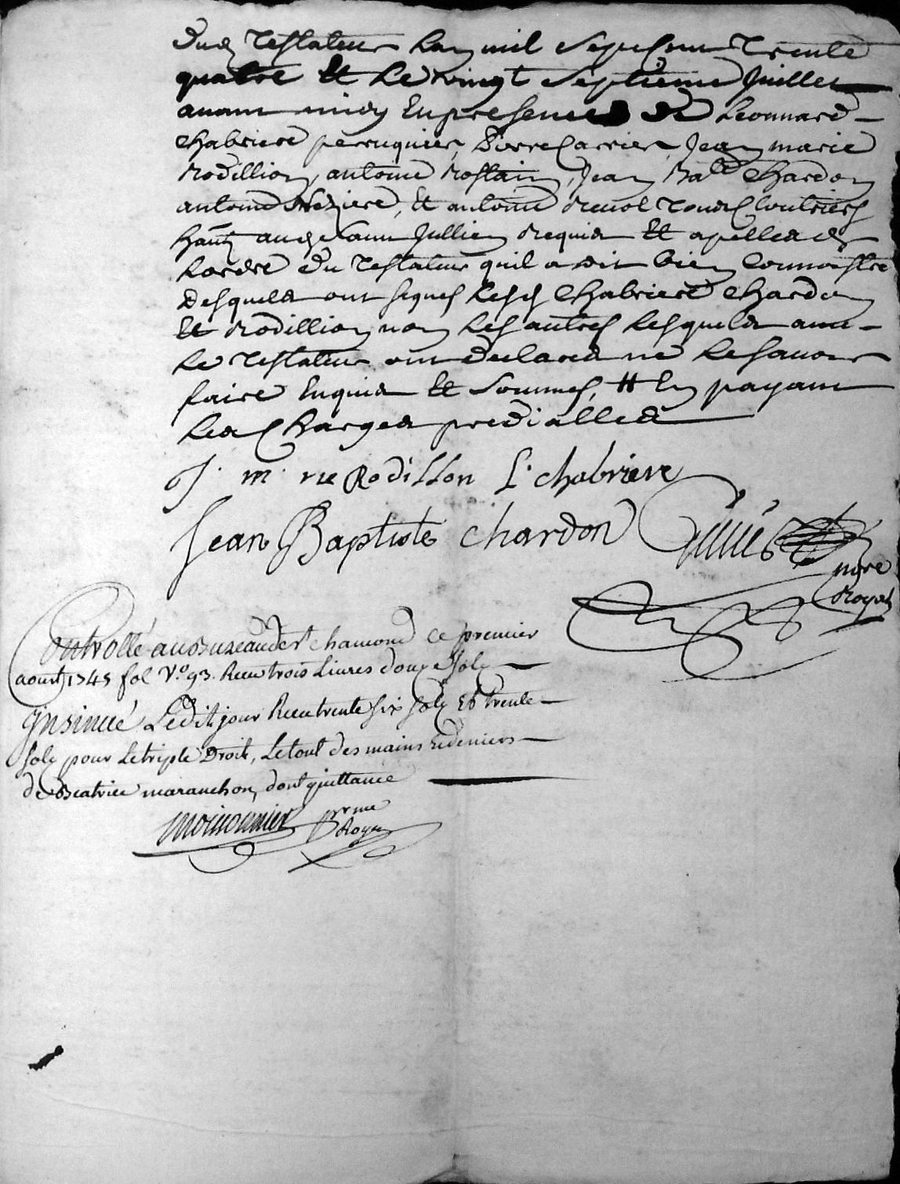 dud testateur Lan mil sept cent trente
quatre et le vingt septieme Juillet
avant midy En presence de Leonnard
Chabriere perruquier, Pierre Carrier, Jean marie
Rodillion, antoine Rostain, Jean Batte Chardon
antoine et antoine tous
audt Saint Jullien Requis et apelles de
Lordre du testateur quil a dit bien Connoistre
desquels ont signes Lesds Chabriere Chardon
Et Rodillion, non Les autres Lesquels avec
Le testateur ont declares ne le savoir
faire Enquis et Sommes, # En payant
Les Charges predialles
J. m. rie Rodillon L. chabriere
Jean Baptiste chardon
nore
Royal
Controllé au Bureau de St chamond ce premier
aoust 1745 fol. Vo. 93. Receu trois Livres douze Sols
Insinué Ledit jour Receu trente six sols Et trente
sols pour Le triple Droit, Le tout des mains Et deniers
de Beatrice maranchon, dont quittance